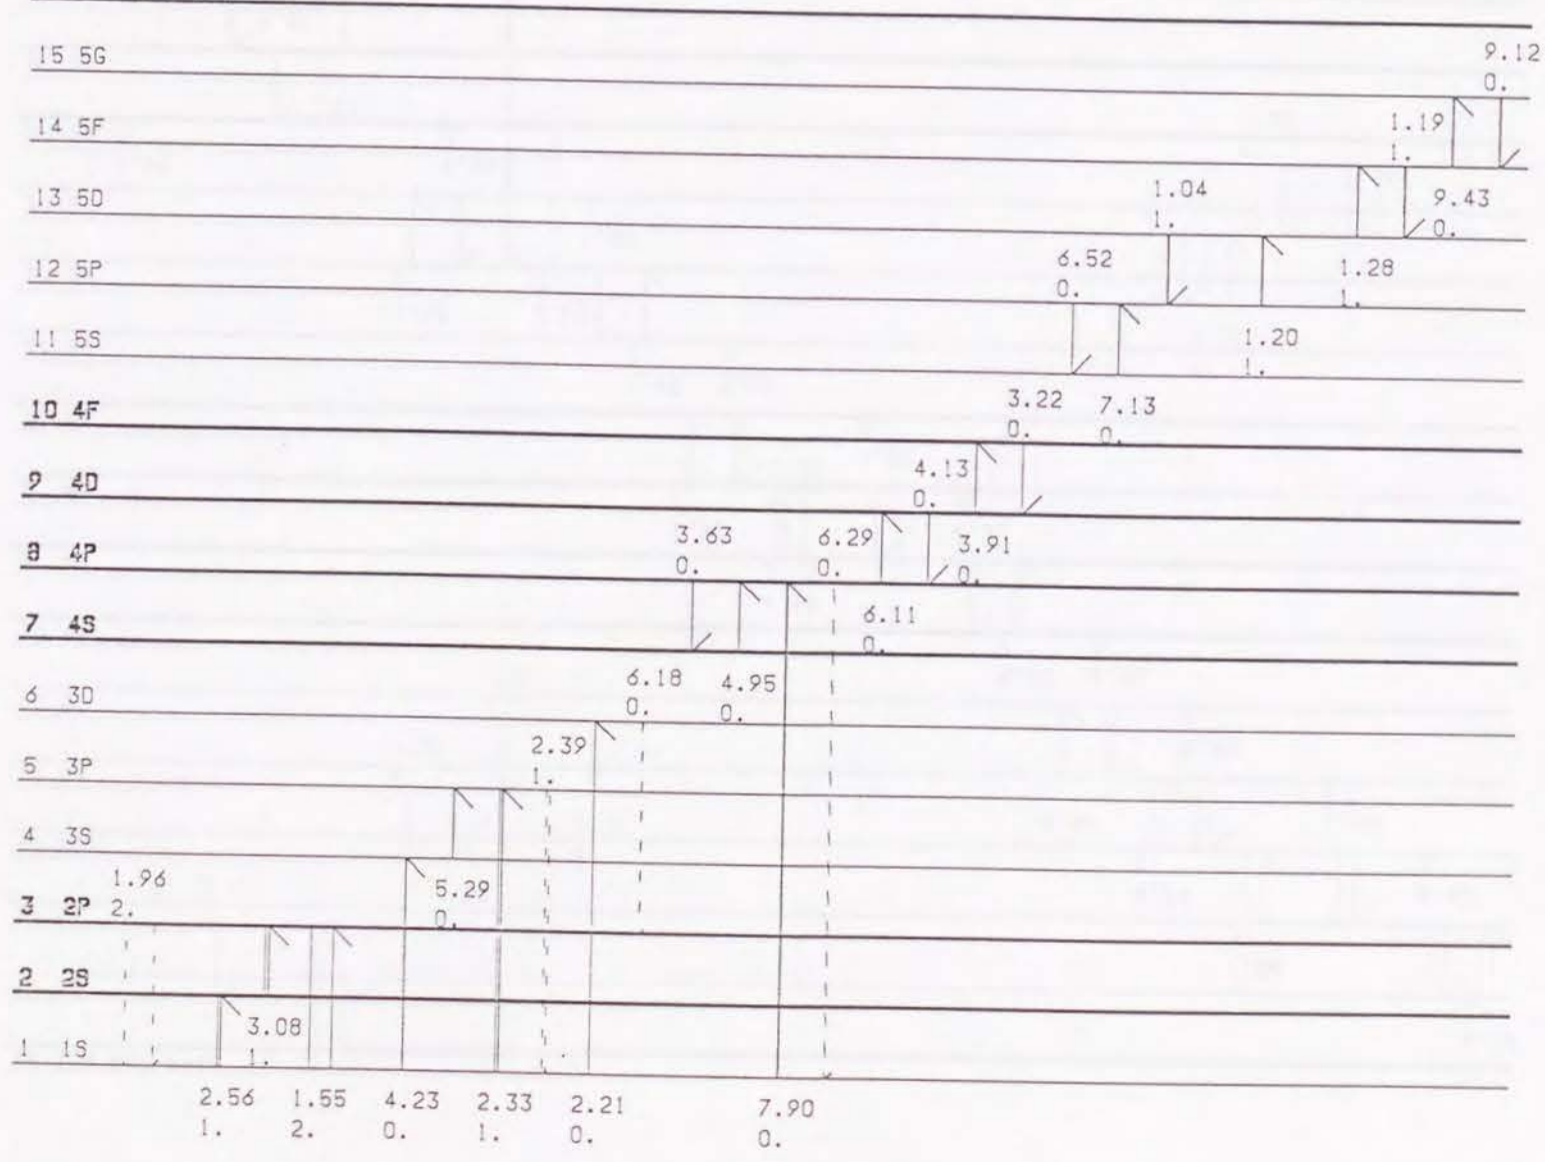 15 5G
9.12
0.
14 5F
1.19
1.
13 5D
1.04
1.
9.43
0.
12 5P
6.52
0.
1.28
1.
11 5S
1.20
1.
10 4F
3.22
0.
7.13
0.
9 4D
4.13
0.
8 4P
3.63
0.
6.29
0.
3.91
0.
7 4S
6.11
0.
6 3D
6.18
0.
4.95
0.
5 3P
2.39
1.
4 3S
1.96
2.
5.29
0.
3 2P
2 2S
3.08
1.
1 1S
2.56 1.55 4.23 2.33 2.21 7.90
1. 2. 0. 1. 0. 0.